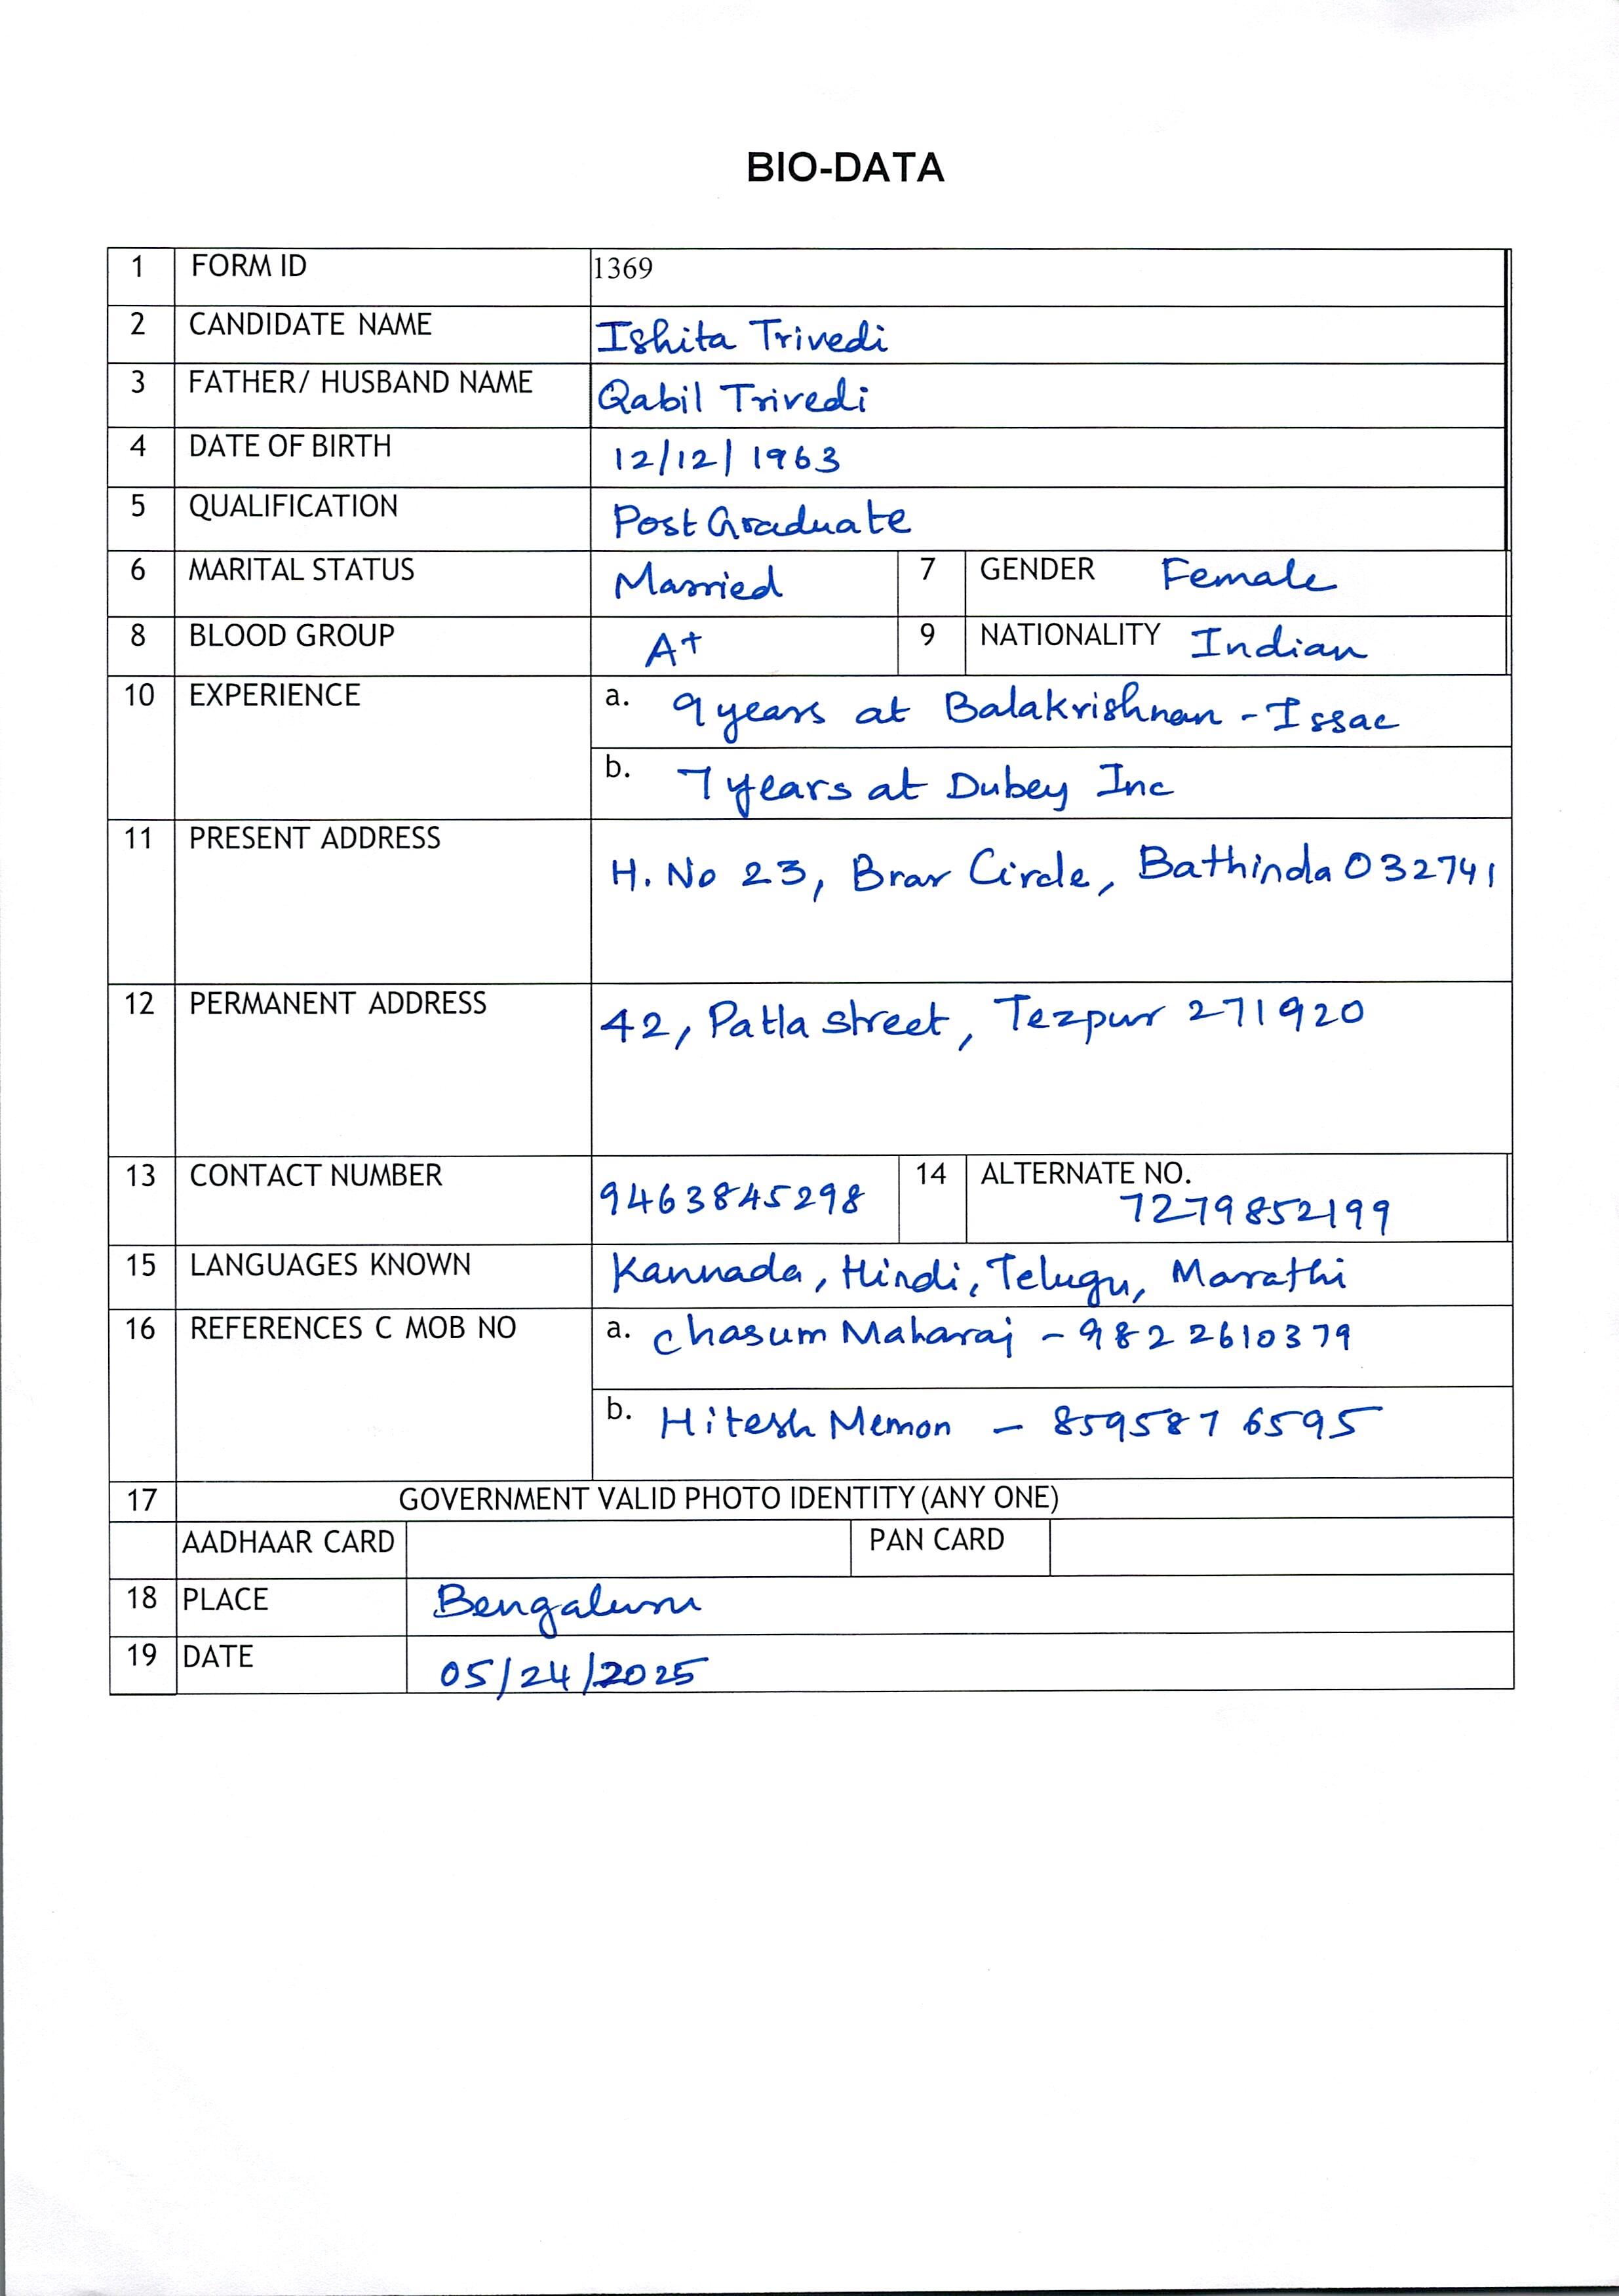 BIO-DATA
1 FORM ID 1369
2 CANDIDATE NAME Ishita Trivedi
3 FATHER/ HUSBAND NAME Qabil Trivedi
4 DATE OF BIRTH 12/12/1963
5 QUALIFICATION Post Graduate
6 MARITAL STATUS Married 7 GENDER Female
8 BLOOD GROUP A+ 9 NATIONALITY Indian
10 EXPERIENCE a. 9 years at Balakrishnan - Issac
b. 7 years at Dubey Inc
11 PRESENT ADDRESS H. No 23, Brar Circle, Bathinda 032741
12 PERMANENT ADDRESS 42, Patla street, Tezpur 271920
13 CONTACT NUMBER 9463845298 14 ALTERNATE NO. 7279852199
15 LANGUAGES KNOWN Kannada, Hindi, Telugu, Marathi
16 REFERENCES C MOB NO a. Chasum Maharaj - 9822610379
b. Hitesh Memon - 8595876595
17 GOVERNMENT VALID PHOTO IDENTITY (ANY ONE)
AADHAAR CARD PAN CARD
18 PLACE Bengaluru
19 DATE 05/24/2025